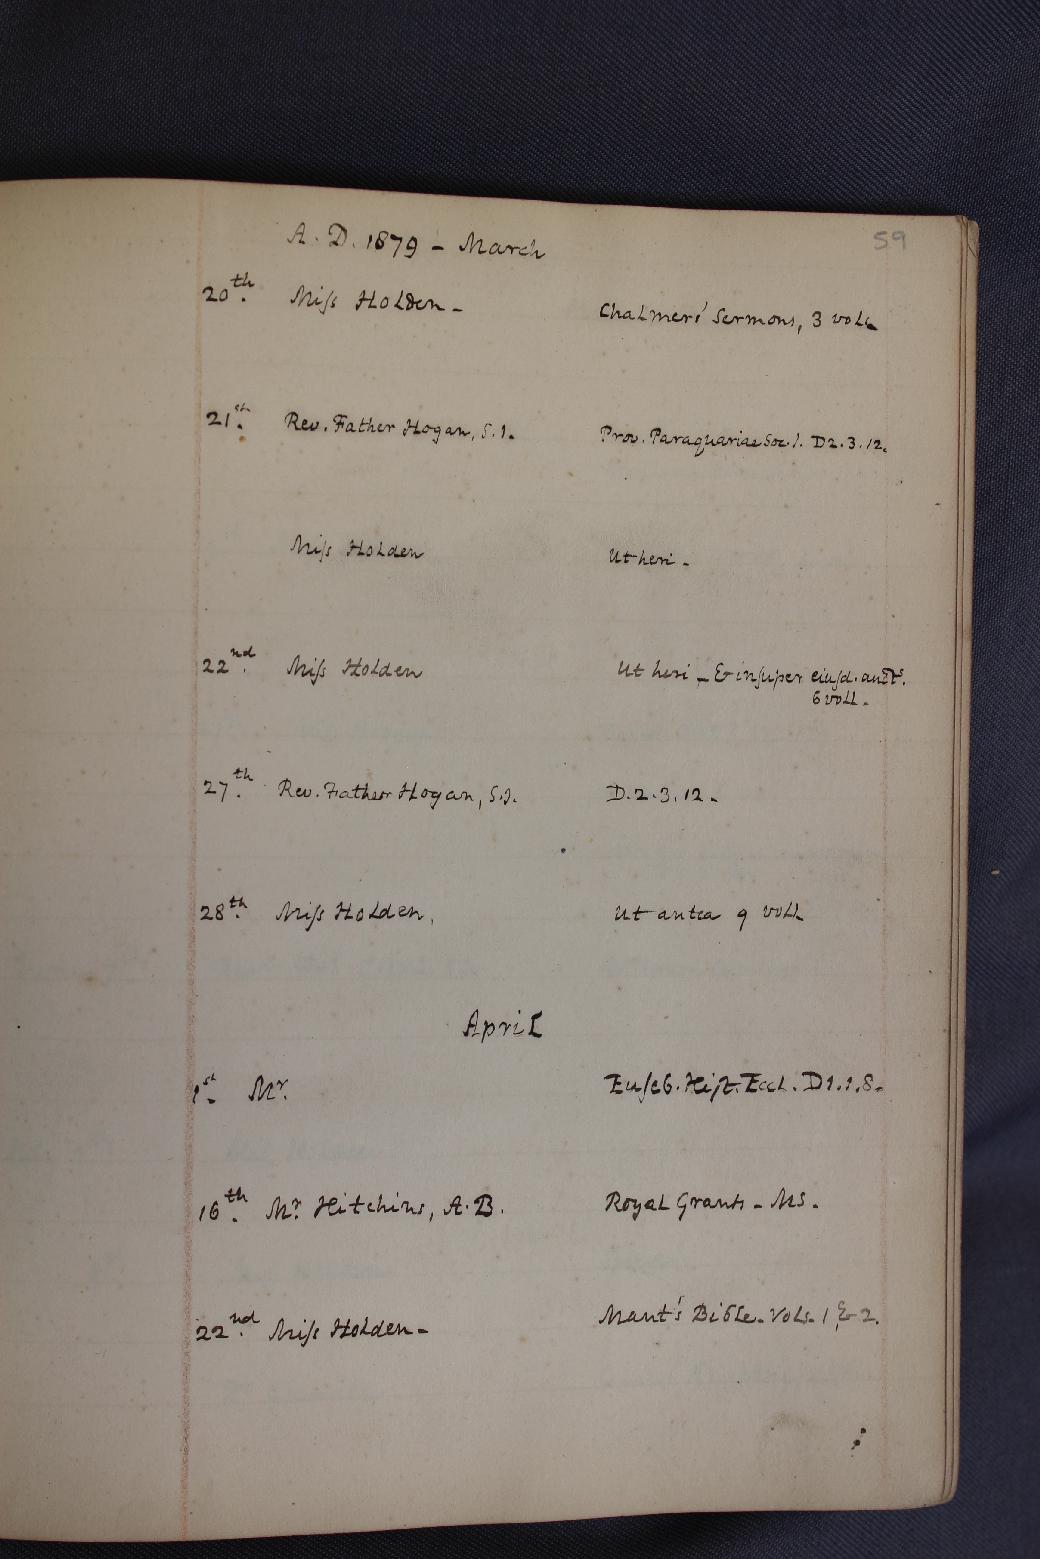 59
A. D. 1879 - March
20th. Miſs Holden - Chalmers' Sermons, 3 voll.
21st. Rev. Father Hogan, S.I. Prov. Paraquariae Soc. I. D2.3.12.
Miſs Holden Ut heri -
22nd. Miſs Holden Ut heri - & inſuper eiuſd. auctS.
6 voll.
27th. Rev. Father Hogan, S.J. D.2.3.12.
28th. Miſs Holden, Ut antea 9 voll
April
1st. Mr. Euſeb. Hiſt. Eccl. D1.1.8.
16th. Mr. Hitchins, A.B. Royal Grants - MS.
22nd. Miſs Holden - Mant's Bible. Vols. 1, & 2.